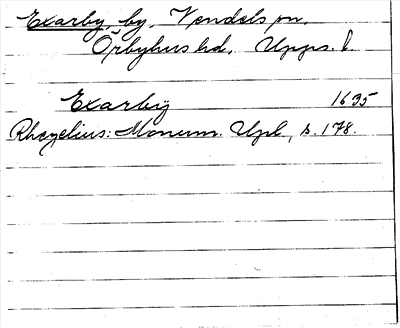 Exarby, by, Vendels sn.
Örbyhus hd. Upps. l.
Exarbÿ 1635
Rhezelius: Monum. Upl., s. 178.